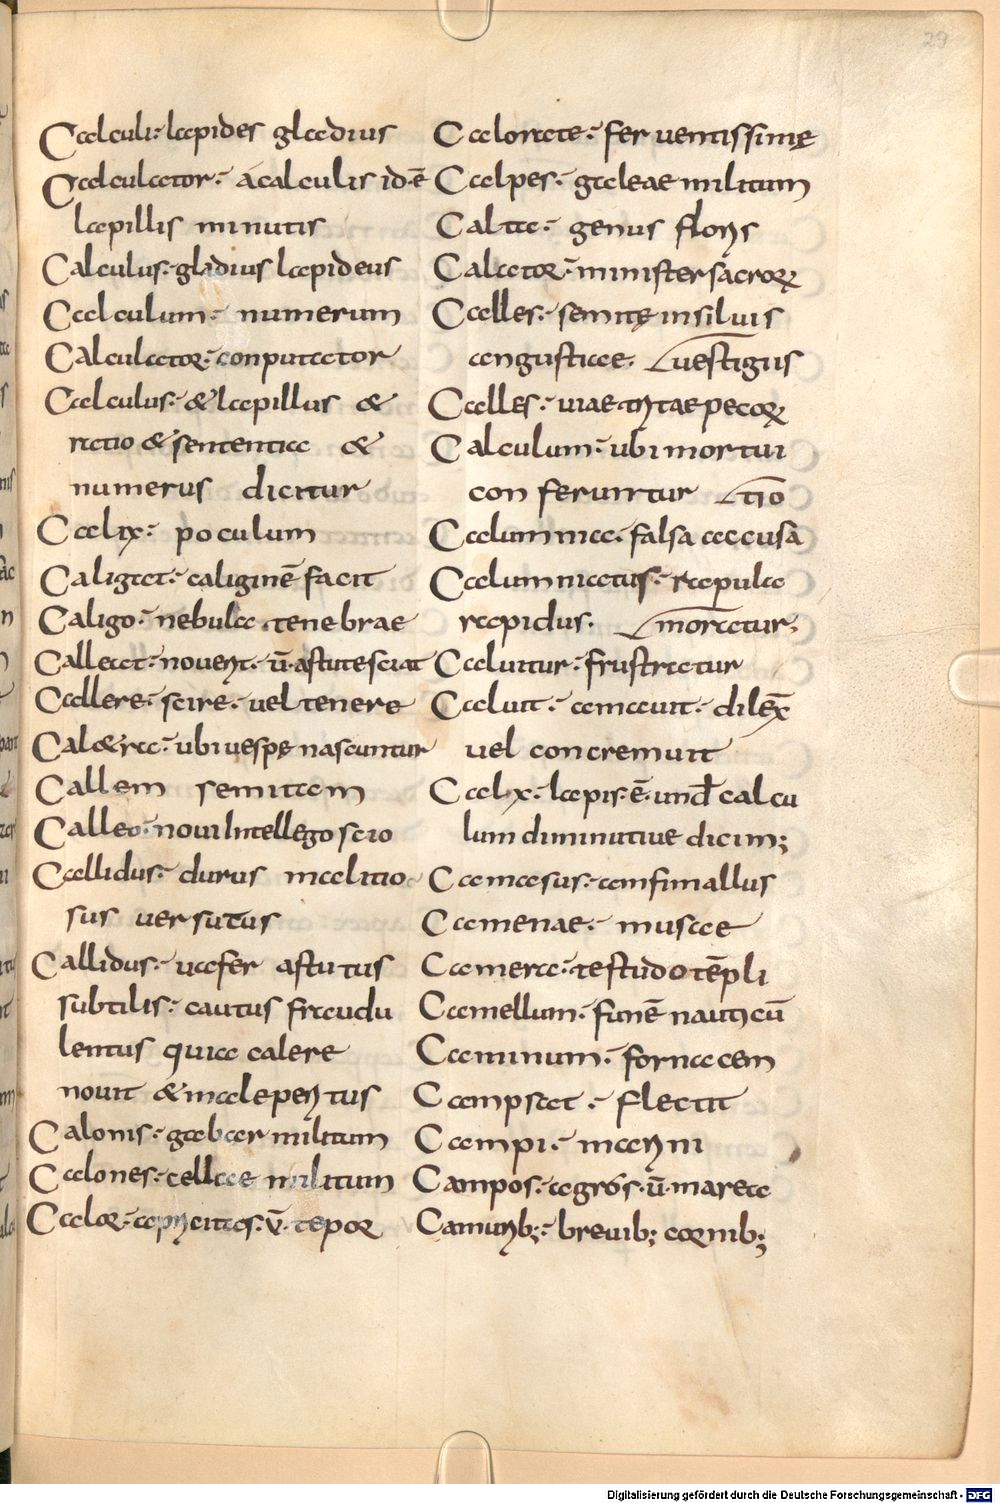 29
Calculi · lapides gladius
Calculator · a calculis id ē
lapillis minutis
Calculus · gladius lapideus
Calculum · numerum
Calculator · conputator
Calculus · & lapillus &
ratio & sententia &
numerus dicitur
Calix · poculum
Caligat · caliginē facit
Caligo · nebula tenebrae
Calleat · noverit · ū · astute sciat
Callere · scire · vel tenere
Cal&ra · ubi vespę nascuntur
Callem semitam
Calleo · novi intellego scio
Callidus · durus malitio
sus versutus
Callidus · vafer astutus
subtilis · cautus fraudu
lentus quia calere
novit & male peritus
Calonis · gabar militum
Calones · cellae militum
Calor · apricitas · ṽ · tepor
Calorate · ferventissimę
Calpes · galeae militum
Calta · genus floris
Calator · minister sacrorꝝ
Calles · semitę in silvis
angustiae · vestigiis
Calles · viae tritae pecorꝝ
Calculum · ubi mortui
con feruntur tīo
Calumnia · falsa accusa
Calumniatus · rapula
rapidus · moratur;
Caluitur · frustratur
Caluit · amavit · dilex̄
vel concremuit
Calx · lapis · ē · und̄ calcu
lum diminutive dicim;
Camasus · amfimallus
Camenae · musae
Camera · testudo tēpli
Camellum · funē nauticū
Caminum · fornacem
Campsat · flectit
Campi · marini
Campos · agros · ū · maria
Camurib; · brevib; cornib;
Digitalisierung gefördert durch die Deutsche Forschungsgemeinschaft - DFG